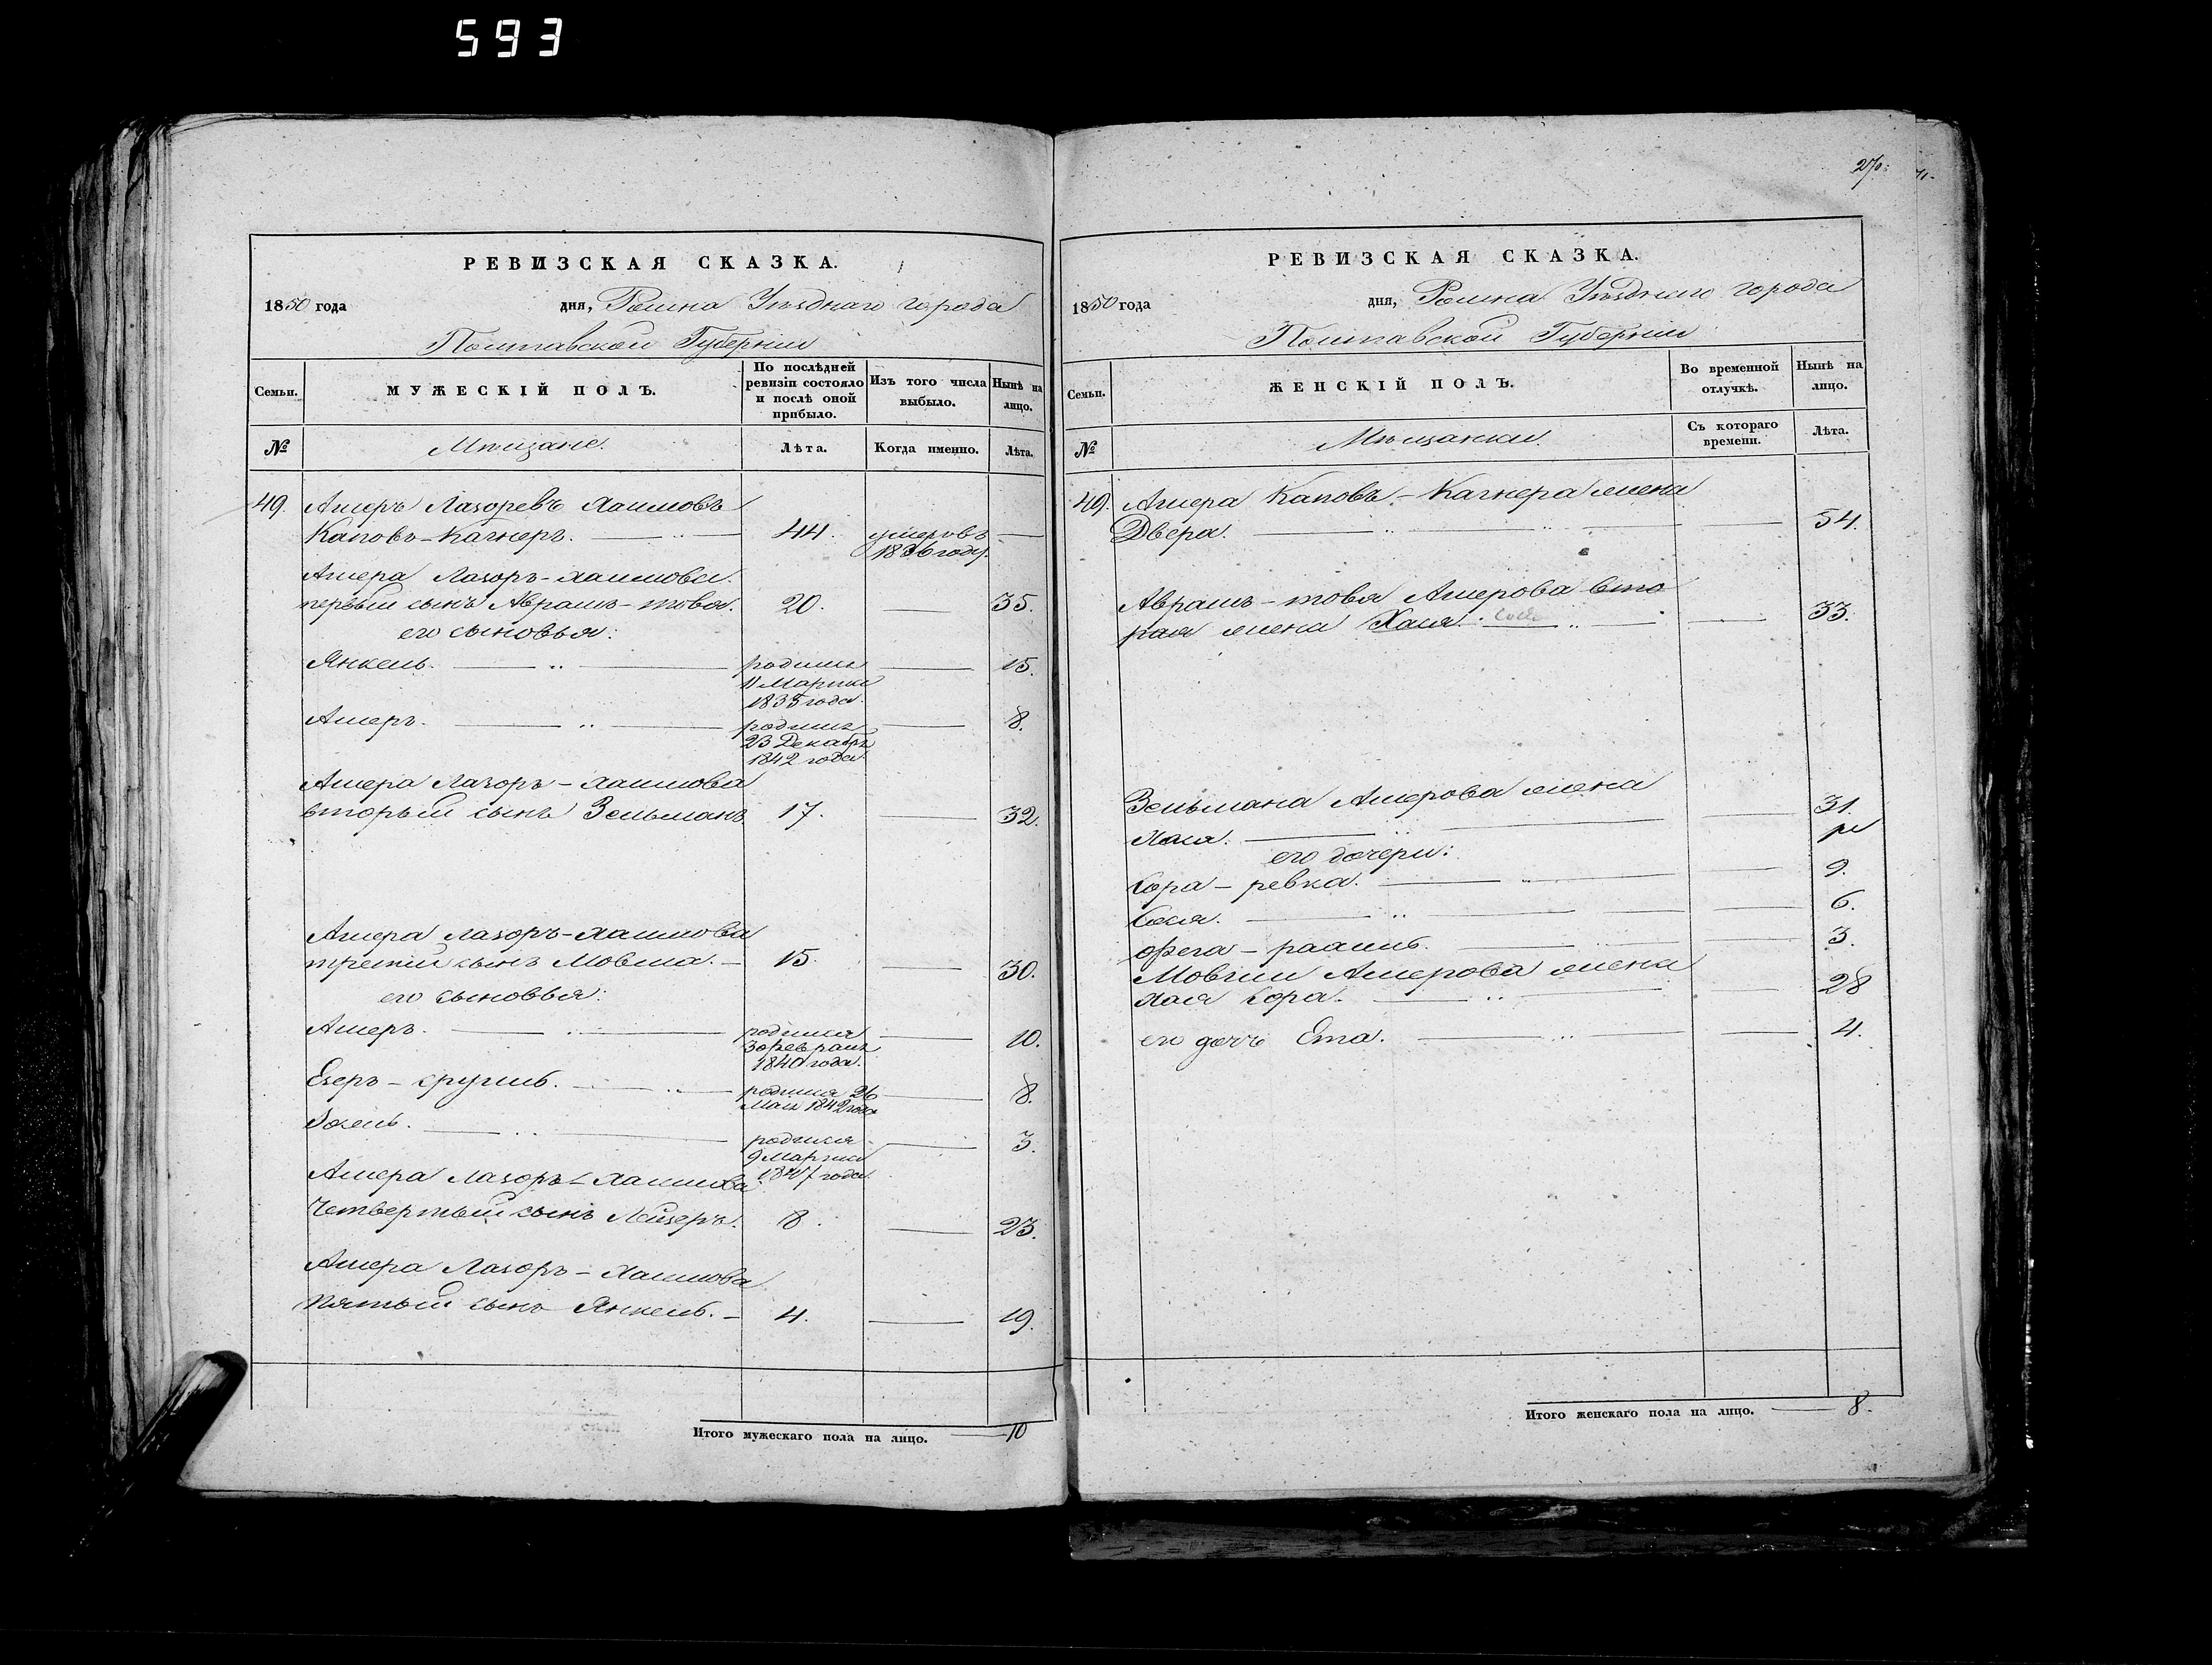 593
270
РЕВИЗСКАЯ СКАЗКА.
1850 года дня, Ромна Уѣзднаго города
Полтавской Губерніи
Семьи. МУЖЕСКІЙ ПОЛЪ. По послѣдней ревизіи состояло и послѣ оной прибыло. Изъ того числа выбыло. Нынѣ на лицо.
№ Мѣщане. Лѣта. Когда именно. Лѣта.
49. Ашеръ Лазоревъ Хаимовъ
Каповъ-Качнеръ. 44. умеръ въ 1836 году.
Ашера Лазоръ-Хаимова
первый сынъ Абрамъ-това. 20. 35.
его сыновья:
Янкель. родился 11 Марта 1835 года. 15.
Ашеръ. родился 23 Декабря 1842 года. 8.
Ашера Лазоръ-Хаимова
вторый сынъ Зельманъ 17. 32.
Ашера Лазоръ-Хаимова
третій сынъ Мовша. 15. 30.
его сыновья:
Ашеръ. родился 3 Февраля 1840 года. 10.
Езеръ-сруль. родился 26 Мая 1842 года 8.
родился 9 Марта 1847 года. 3.
Ашера Лазоръ-Хаимова
Четвертый сынъ Лейзеръ. 8. 23.
Ашера Лазоръ-Хаимова
пятый сынъ Янкель. 4. 19.
Итого мужескаго пола на лицо. 10
РЕВИЗСКАЯ СКАЗКА.
1850 года дня, Ромна Уѣзднаго города
Полтавской Губерніи
Семьи. ЖЕНСКІЙ ПОЛЪ. Во временной отлучкѣ. Нынѣ на лицо.
№ Мѣщанки. Съ котораго времени. Лѣта.
49. Ашера Каповъ-Качнера жена
Двера. 54.
Абрамъ-това Ашерова вто
рая жена Хася. 33.
Зельмана Ашерова жена
Хася. 31.
его дочери:
Сора-ревка. 9.
Сося. 6.
Фега-рахиль. 3.
Мовши Ашерова жена
Хая Сора. 28
его дочь Ета. 4.
Итого женскаго пола на лицо. 8.